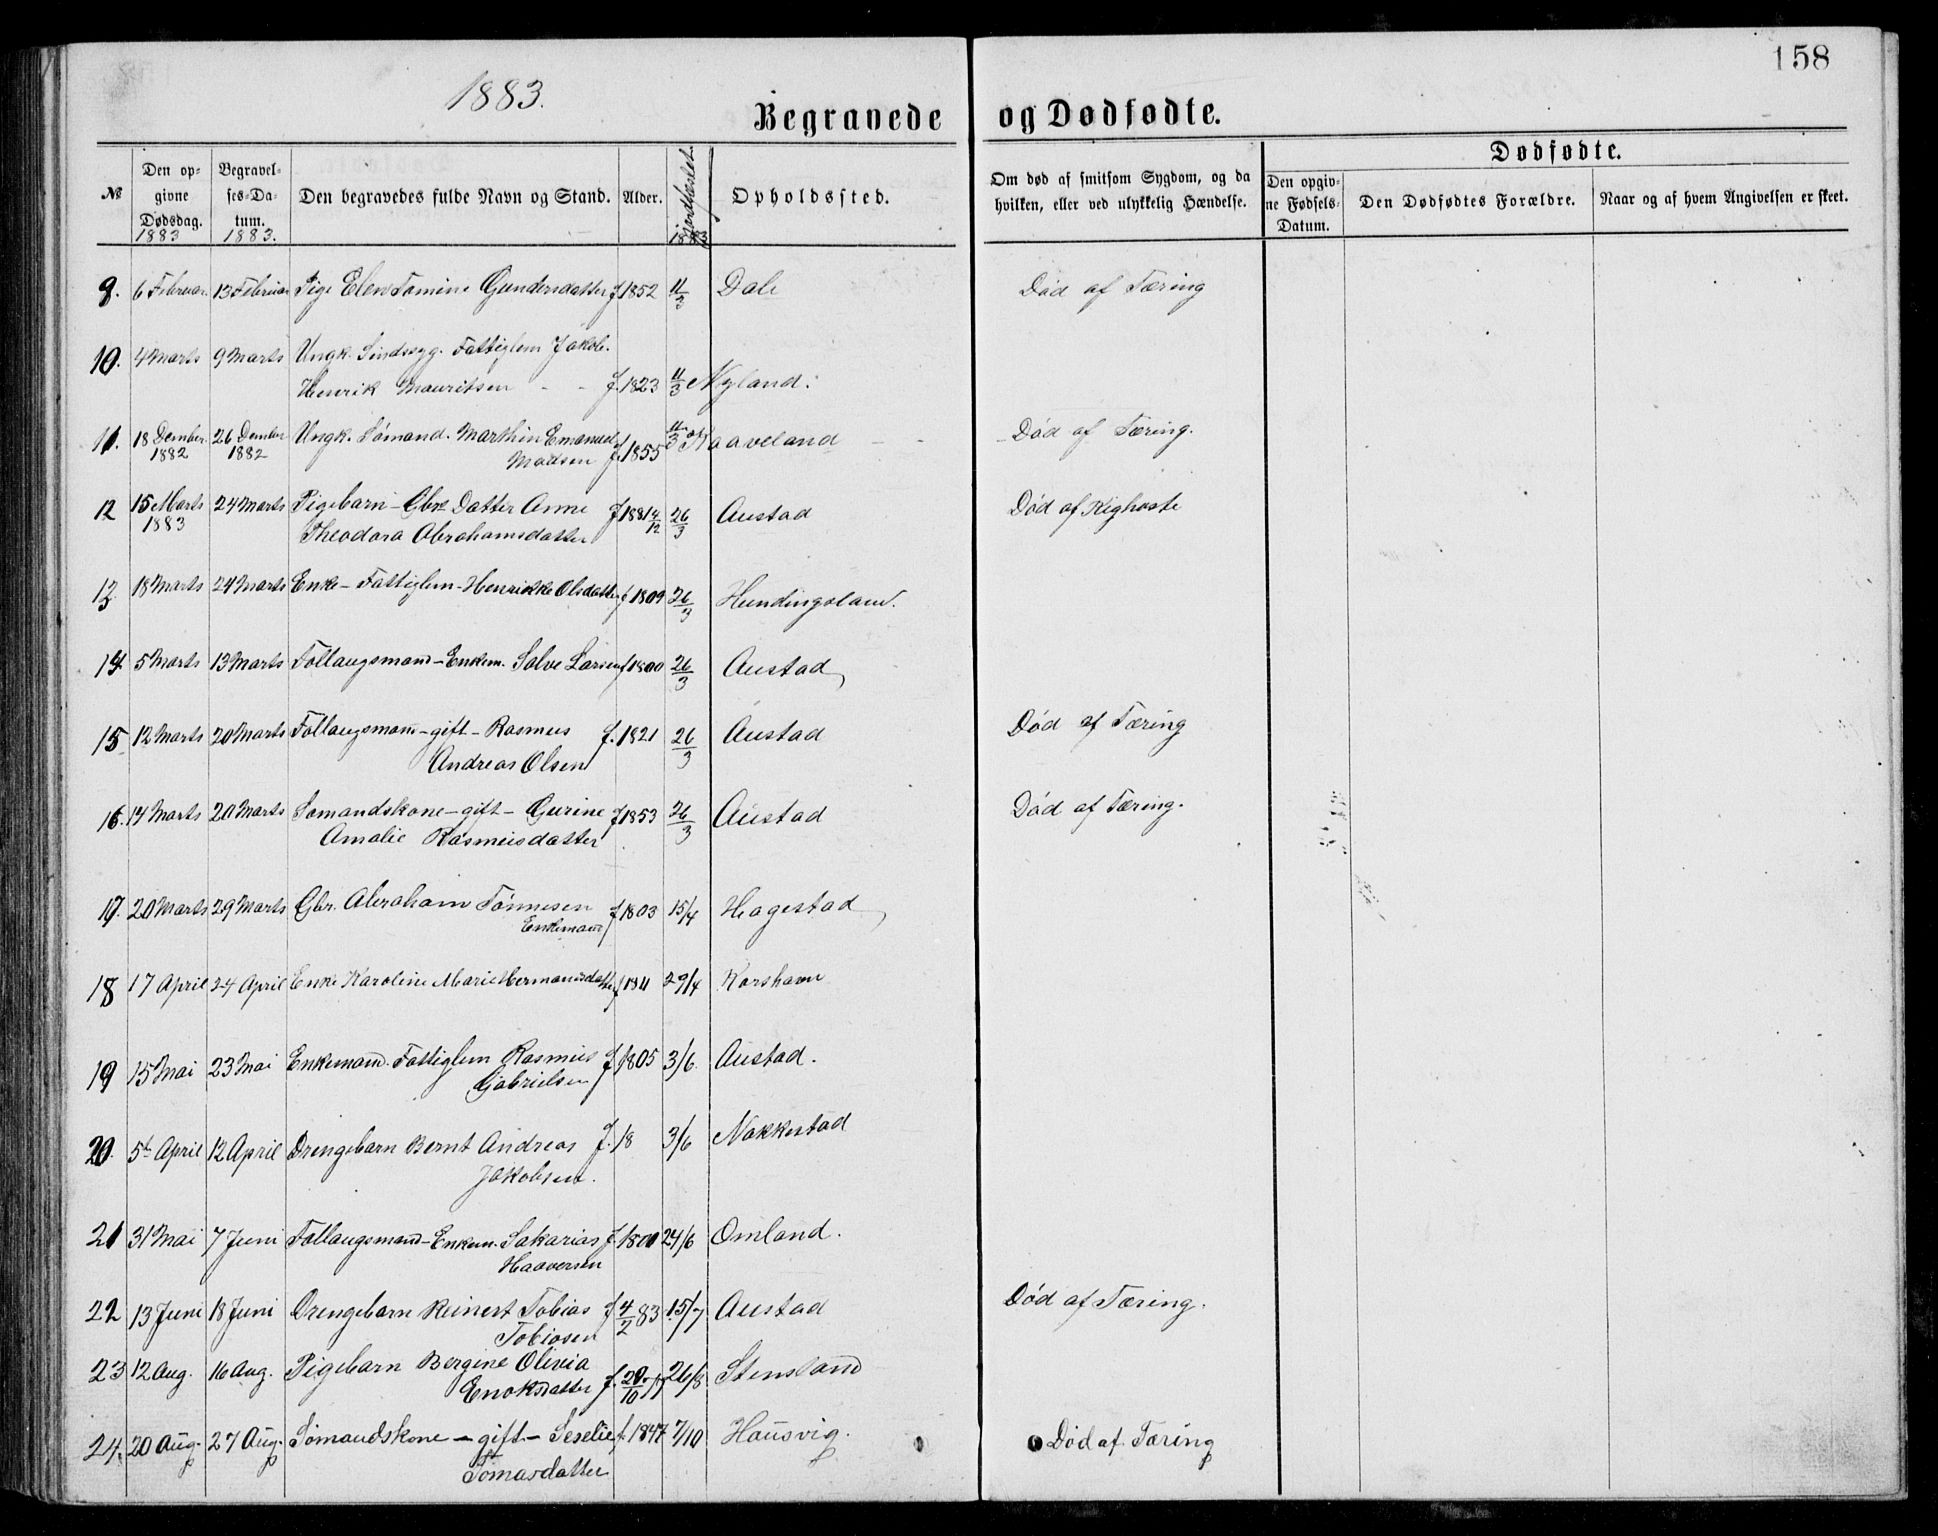 158
1883.
Begravede og Dødfødte.
№ Den opgivne Dødsdag. 1883 Begravelses-Datum. 1883. Den begravedes fulde Navn og Stand. Alder. jordfæstet. 1883 Opholdssted. Om død af smitsom Sygdom, og da hvilken, eller ved ulykkelig Hændelse.
Dødfødte.
Den opgivne Fødsels-Datum. Den Dødfødtes Forældre. Naar og af hvem Angivelsen er skeet.
9. 6 Februar. 13 Februar Pige Elen Tomine Gundersdatter f 1852 11/3 Dale Død af Tæring
10. 4 Marts 9 Marts Ungk. Sindssyg. Fattiglem Jakob.
Henrik Mauritsen - - f. 1823 11/3 Nyland.
11. 18 Dember. 26 Dember Ungk. Sømand. Marthin Emanuel 11/3 Haaveland Død af Tæring.
1882 1882 Madsen f. 1855
12 15 Marts 24 Marts Pigebarn - Gbr. Datter Anne f 1881 4/12 26/3 Austad Død af Kighoste
1883 Theodora Abrahamsdatter
13 18 Marts 24 Marts Enke - Fattiglem - Henrikke Olsdatter f 1809 26/3 Hundingsland.
14 5 Marts 13 Marts Follaugsmand - Enkem. Salve Larsen f 1800 26/3 Austad
15 12 Marts 20 Marts Follaugsmand - gift - Rasmus f. 1821 26/3 Austad Død af Tæring
Andreas Olsen
16. 14 Marts 20 Marts Sømandskone - gift - Gurine f 1853 26/3 Austad Død af Tæring.
Amalie Rasmusdatter
17. 20 Marts 29 Marts Gbr. Abraham Tønnesen f 1803 15/4 Hagestad
Enkemand
18 17 April 24 April Enke Karoline Marie Hermansdatter f 1811 29/4 Korshavn
19 15 Mai 23 Mai Enkemand. Fattiglem Rasmus f 1805 3/6 Austad.
Gabrielsen
20. 5te April 12 April Drengebarn Bernt Andreas f. 18 3/6 Nakkestad
Jakobsen.
21 31 Mai 7 Juni Follaugsmand - Enkem. Sakarias f 1800 24/6 Omland.
Haaversen
22 13 Juni 18 Juni Drengebarn Reinert Tobias f 4/2 83 15/7 Austad Død af Tæring.
Tobiasen
23 12 Aug. 16 Aug. Pigebarn Bergine Olivia
Enoksdatter f. 20/10 26/8 Stensland
24. 20 Aug. 27 Aug. Sømandskone - gift - Seselie f. 1847 7/10 Hausvig. Død af Tæring
Tomasdatter